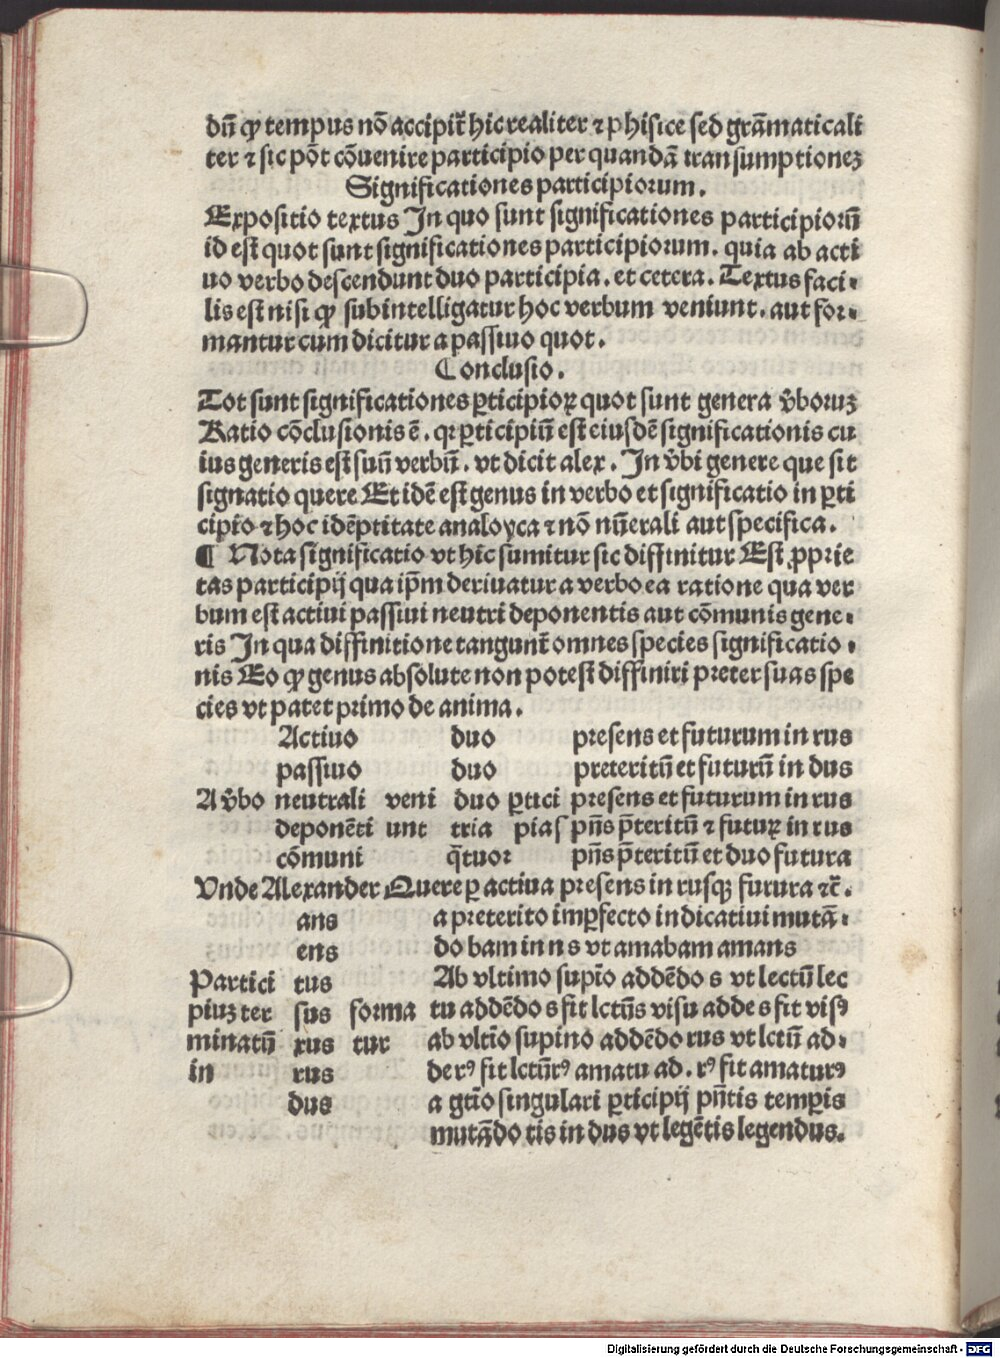 dū ꝙ tempus nō accipit̄ hic realiter ⁊ phisice sed grāmaticali
ter ⁊ sic pōt cōuenire participio per quandā transumptioneꝫ
Significationes participiorum.
Expositio textus In quo sunt significationes participiorū
id est quot sunt significationes participiorum. quia ab acti
uo verbo descendunt duo participia. et cetera. Textus faci⸗
lis est nisi ꝙ subintelligatur hoc verbum veniunt. aut for⸗
mantur cum dicitur a passiuo quot.
Conclusio.
Tot sunt significationes ꝑticipioꝝ quot sunt genera v̄boruꝫ
Ratio cōclusionis ē. qꝛ ꝑticipiū est eiusdē significationis cu
ius generis est suū verbū. vt dicit alex. In v̄bi genere que sit
signatio quere Et idē est genus in verbo et significatio in ꝑti
cipio ⁊ hoc idēptitate analoyca ⁊ nō nūerali aut specifica.
¶ Nota significatio vt hic sumitur sic diffinitur Est ꝓprie
tas participij qua ip̄m deriuatur a verbo ea ratione qua ver
bum est actiui passiui neutri deponentis aut cōmunis gene⸗
ris In qua diffinitione tangunt̄ omnes species significatio⸗
nis Eo ꝙ genus absolute non potest diffiniri preter suas spe
cies vt patet primo de anima.
Actiuo duo presens et futurum in rus
passiuo duo preteritū et futurū in dus
A v̄bo neutrali veni duo ꝑtici presens et futurum in rus
deponēti unt tria pias pn̄s p̄teritū ⁊ futuꝝ in rus
cōmuni q̄tuor pn̄s p̄teritū et duo futura
Vnde Alexander Quere ꝑ actiua presens in rusqꝫ futura ⁊c̄.
ans a preterito imꝑfecto indicatiui mutā⸗
ens do bam in n s vt amabam amans
Partici tus Ab vltimo supīo addēdo s vt lectū lec
piuꝫ ter sus forma tu addēdo s fit lctūs visu adde s fit visꝰ
minatū xus tur ab vltīo supino addēdo rus vt lctū ad⸗
in rus de rꝰ fit lctūrꝰ amatu ad. rꝰ fit amaturꝰ
dus a gtīo singulari ꝑticipij pn̄tis temꝑis
mutādo tis in dus vt legētis legendus.
Digitalisierung gefördert durch die Deutsche Forschungsgemeinschaft - DFG